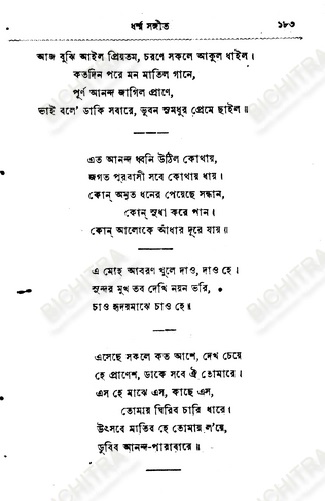 ধর্ম্ম সঙ্গীত ১৮৩
আজ বুঝি আইল প্রিয়তম, চরণে সকলে আকুল ধাইল।
কতদিন পরে মন মাতিল গানে,
পূর্ণ আনন্দ জাগিল প্রাণে,
ভাই বলে' ডাকি সবারে, ভুবন সুমধুর প্রেমে ছাইল॥
এত আনন্দ ধ্বনি উঠিল কোথায়,
জগত পুরবাসী সবে কোথায় ধায়।
কোন্ অমৃত ধনের পেয়েছে সন্ধান,
কোন্ সুধা করে পান।
কোন্ আলোকে আঁধার দূরে যায়॥
এ মোহ আবরণ খুলে দাও, দাও হে।
সুন্দর মুখ তব দেখি নয়ন ভরি,
চাও হৃদয়মাঝে চাও হে॥
এসেছে সকলে কত আশে, দেখ চেয়ে
হে প্রাণেশ, ডাকে সবে ঐ তোমারে।
এস হে মাঝে এস, কাছে এস,
তোমায় ঘিরিব চারি ধারে।
উৎসবে মাতিব হে তোমায় ল'য়ে,
ডুবিব আনন্দ-পারাবারে॥
BICHITRA